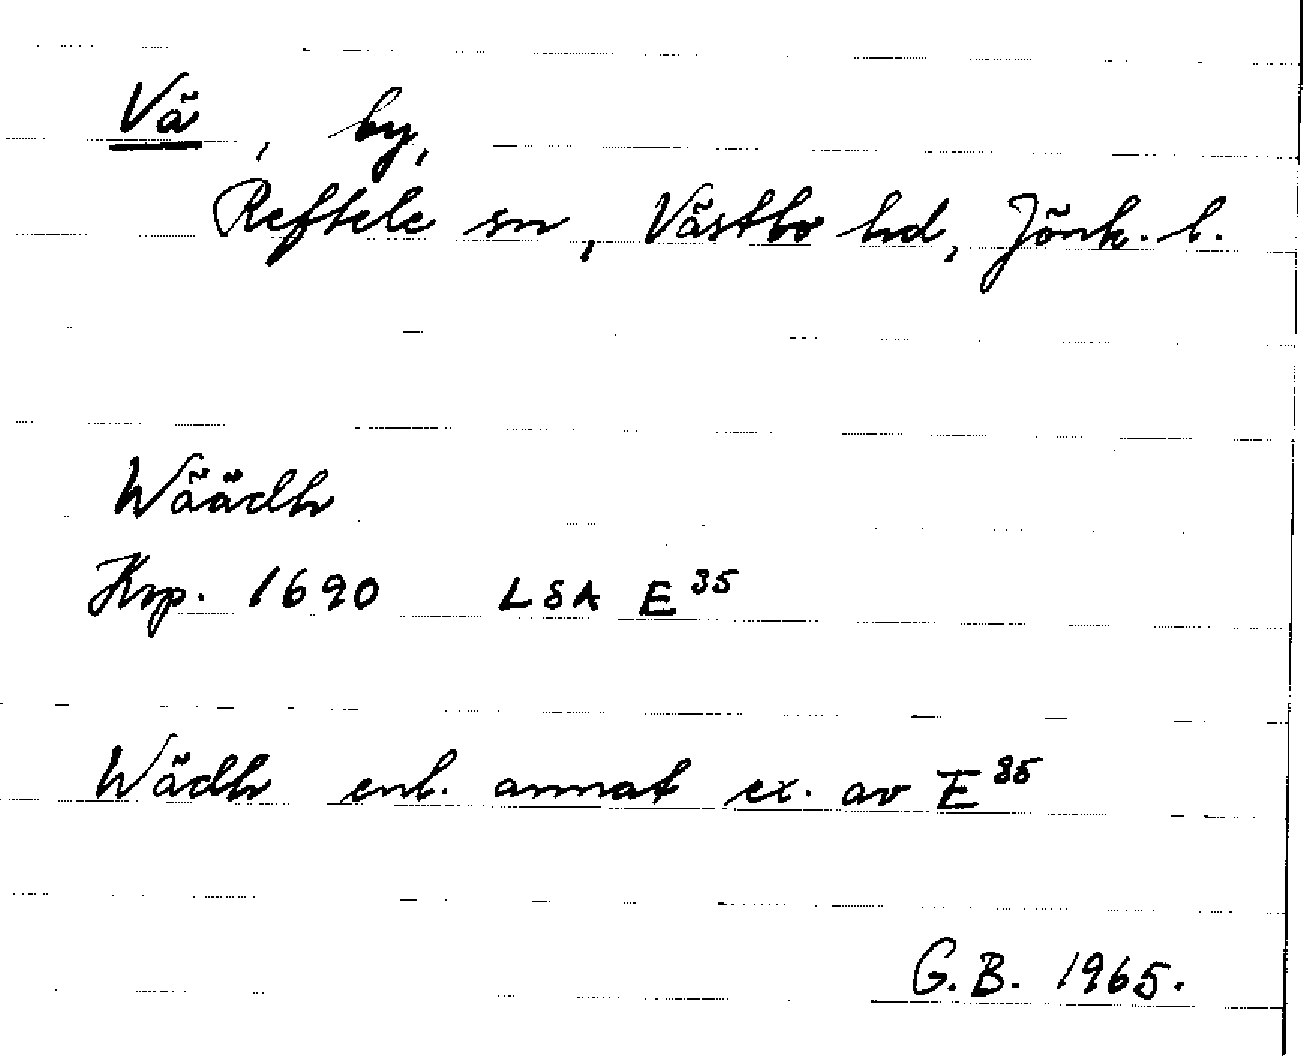 Vä, by,
Reftele sn, Västbo hd, Jönk. l.
Wäädh
Krp. 1690 LSA E 35
Wädh enl. annat ex. av E 35
G.B. 1965.